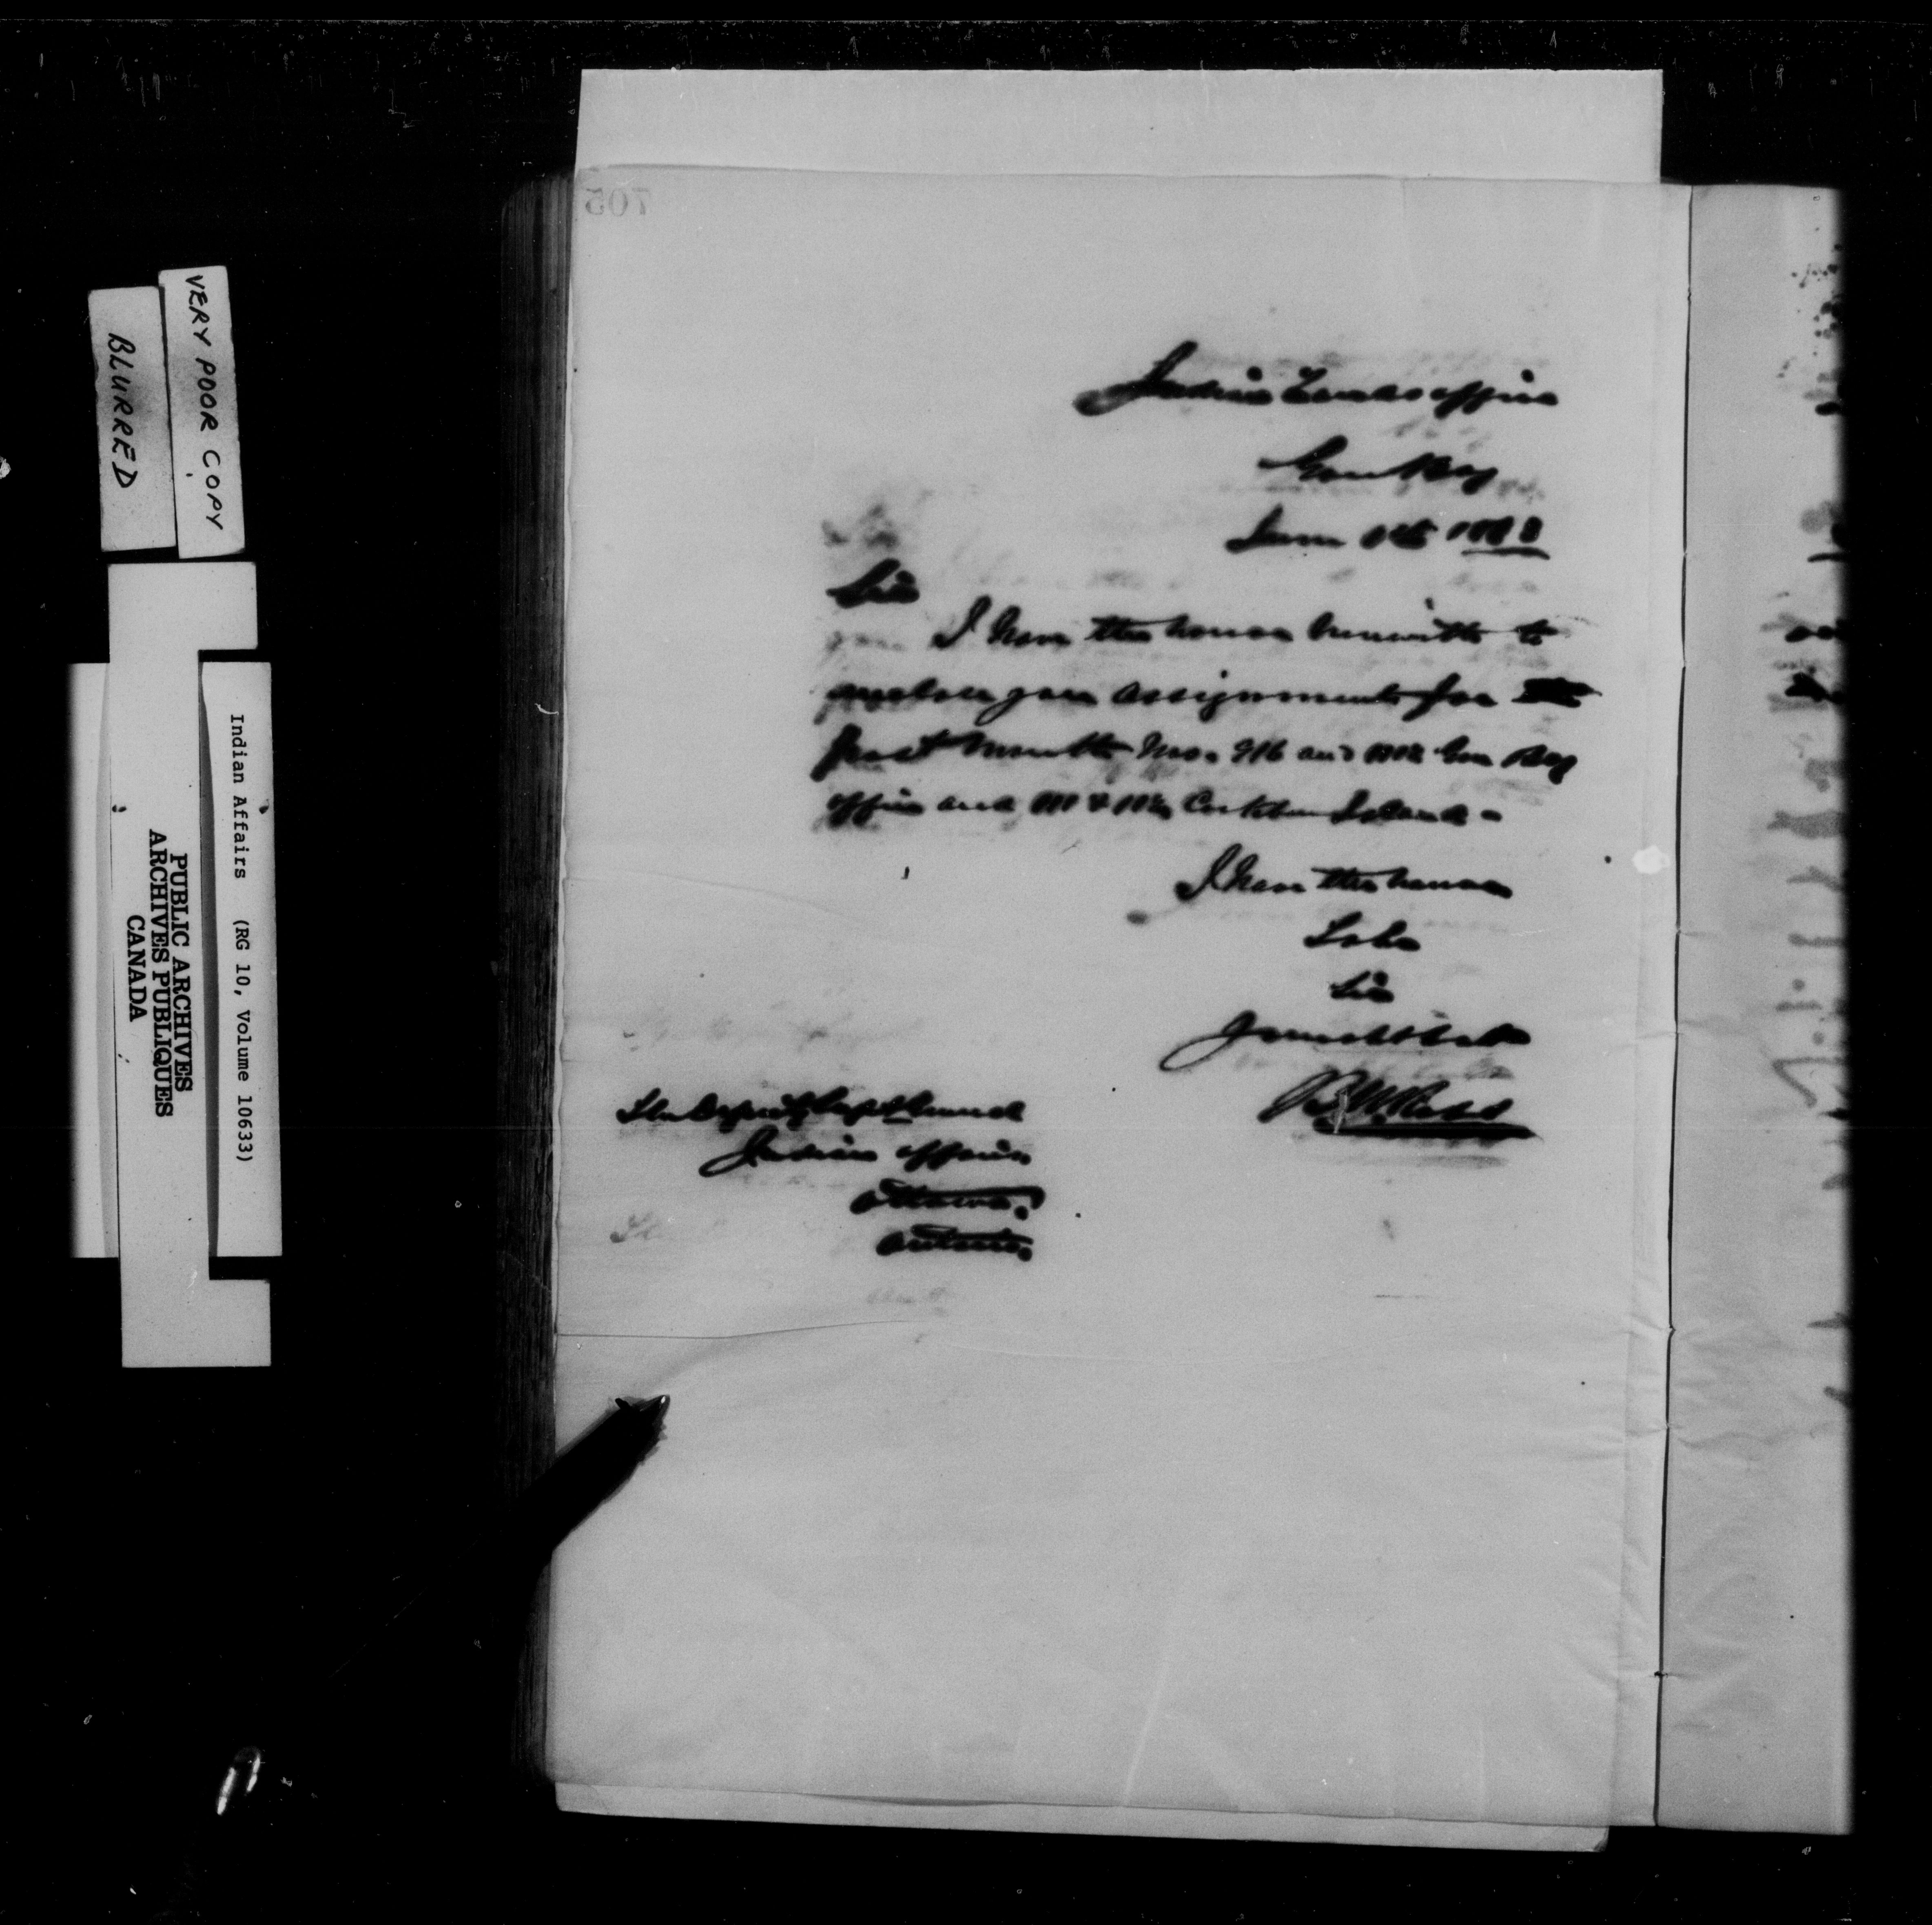 705
Indian Lands office
Gore Bay
June 188
Sir
I have the honor herewith to
enclose you assignments for
past month Nos. and Gore Bay
office and & Cockburn Island -
I have the honor
To be
Sir
Your obt Svt
B W Ross
The Deputy Supt General
Indian affairs
Ottawa.
Ontario.
VERY POOR COPY
BLURRED
Indian Affairs (RG 10, Volume 10633)
PUBLIC ARCHIVES
ARCHIVES PUBLIQUES
CANADA